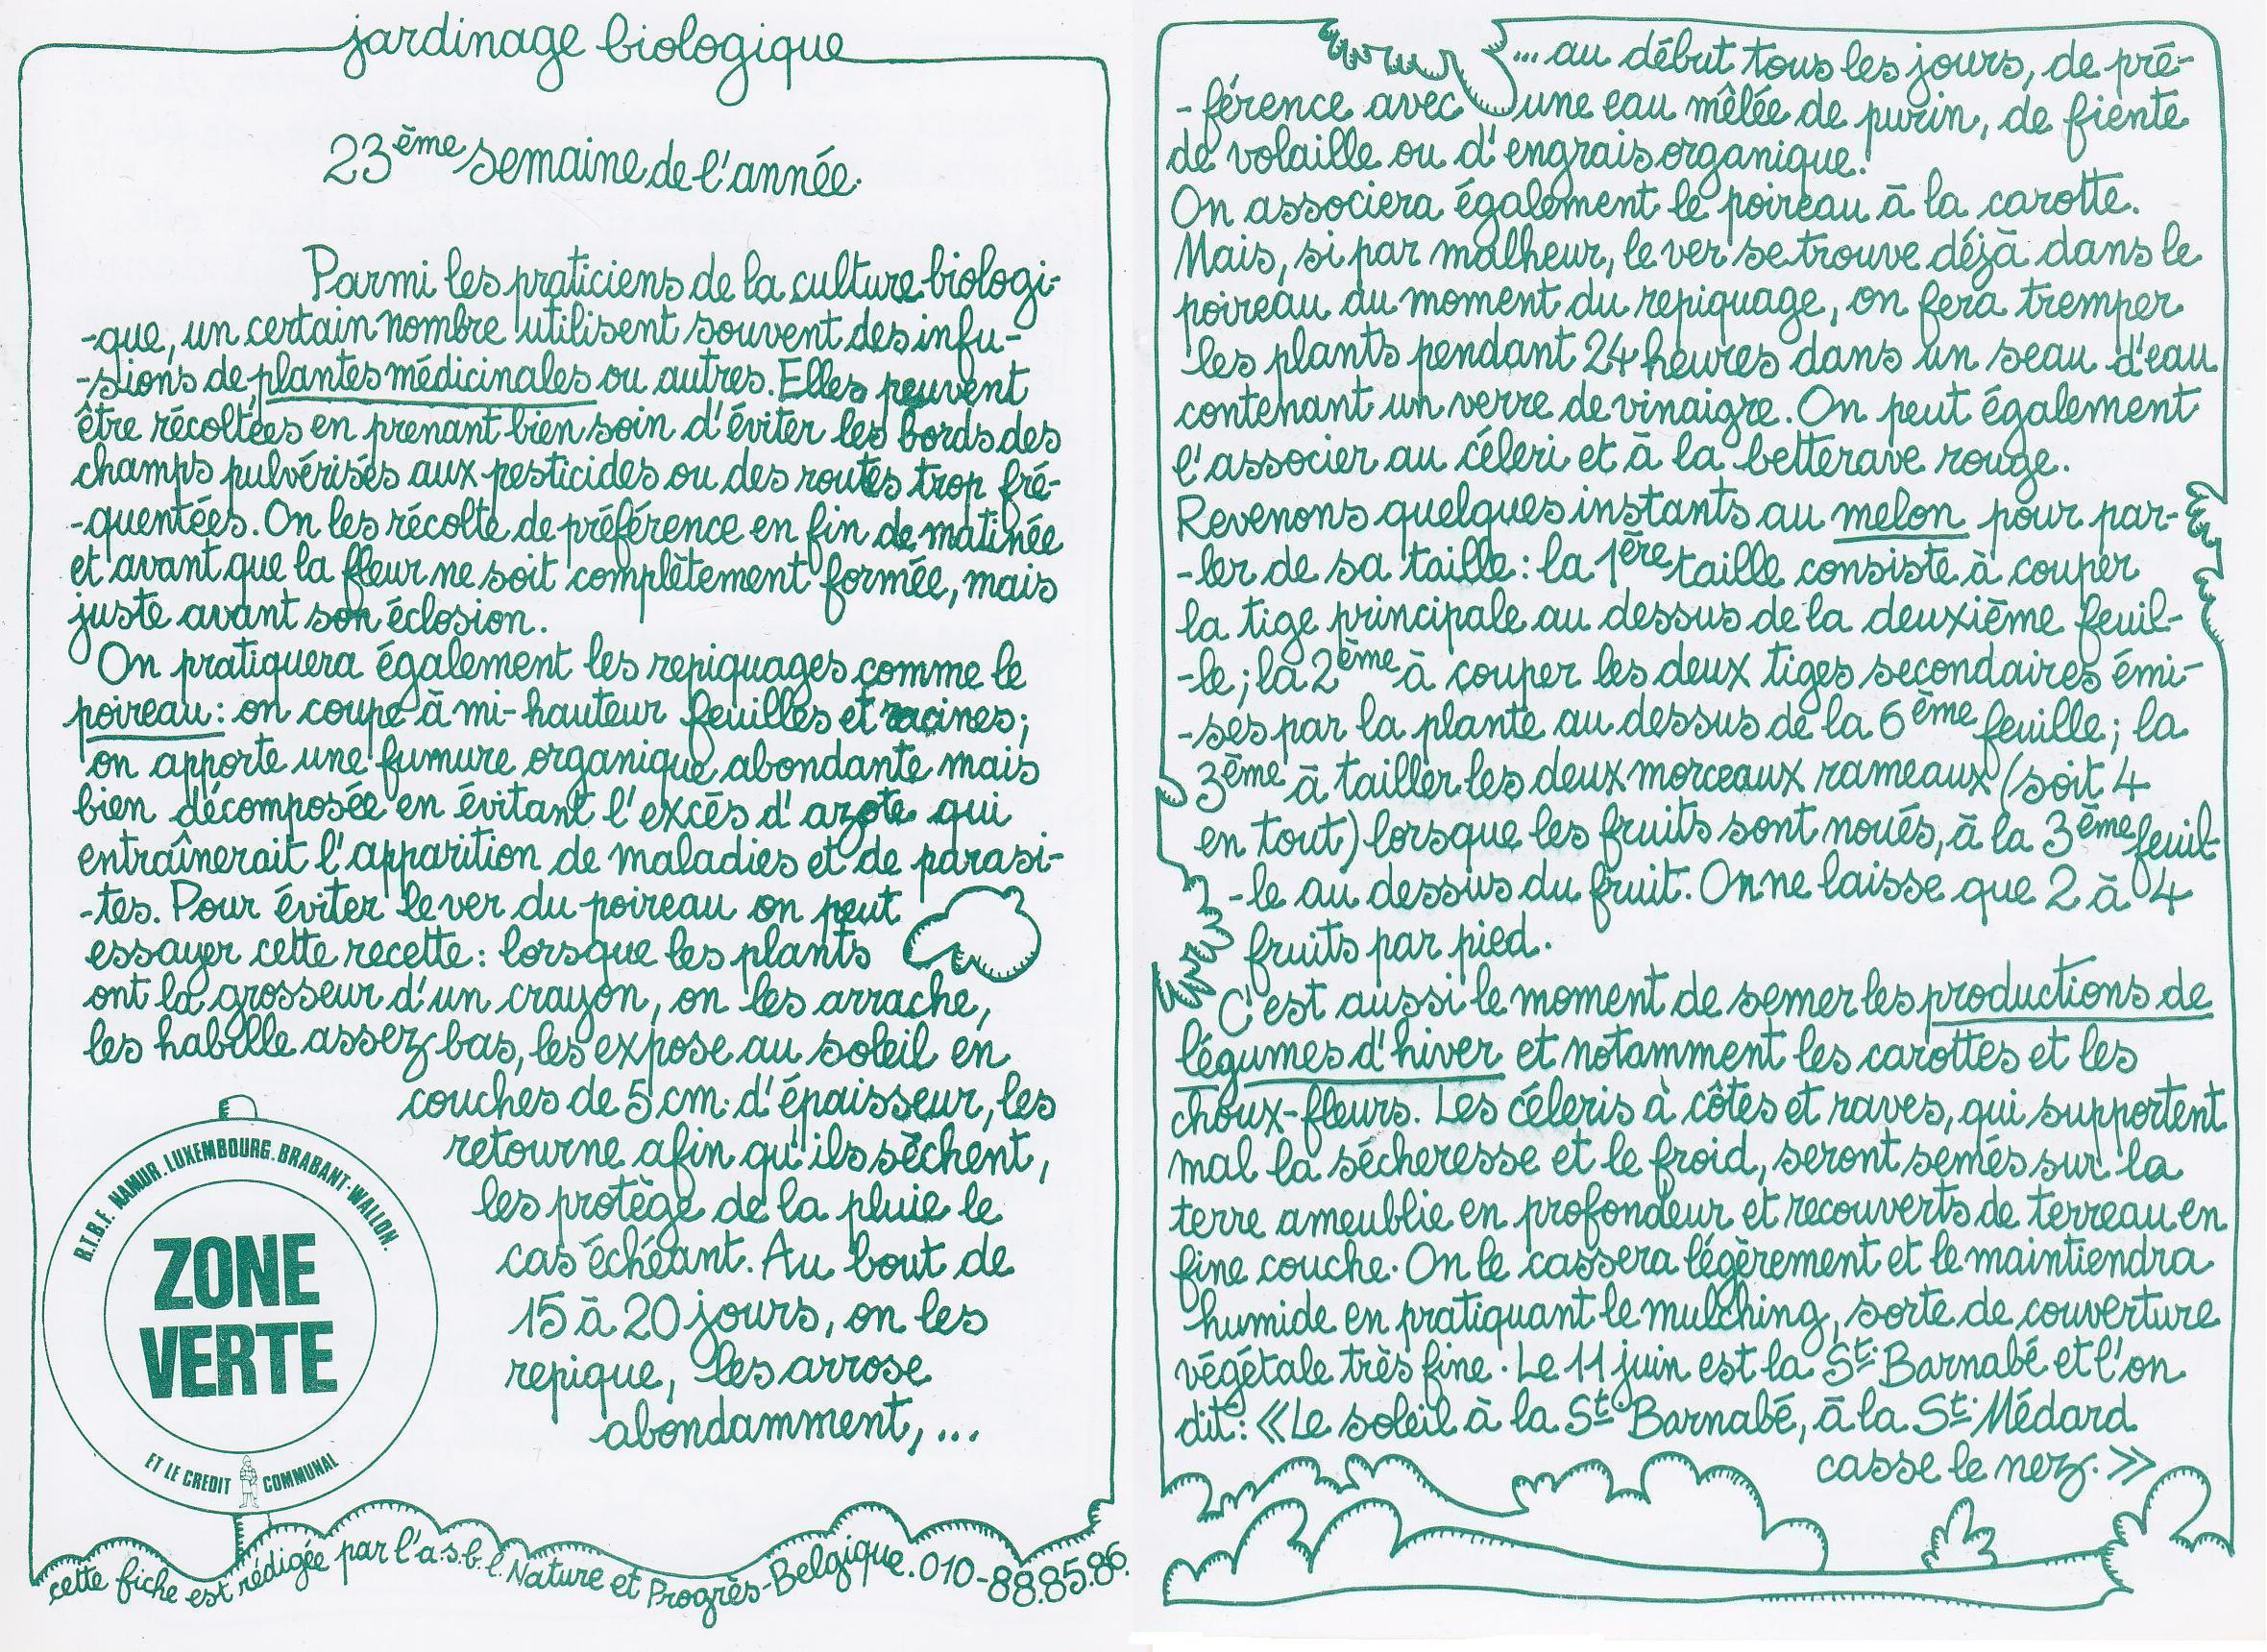 jardinage biologique
23ème semaine de l'année.
Parmi les praticiens de la culture biologi-
-que, un certain nombre utilisent souvent des infu-
-sions de plantes médicinales ou autres. Elles peuvent
être récoltées en prenant bien soin d'éviter les bords des
champs pulvérisés aux pesticides ou des routes trop fré-
-quentées. On les récolte de préférence en fin de matinée
et avant que la fleur ne soit complètement formée, mais
juste avant son éclosion.
On pratiquera également les repiquages comme le
poireau : on coupe à mi-hauteur feuilles et racines;
on apporte une fumure organique abondante mais
bien décomposée en évitant l'excès d'azote qui
entraînerait l'apparition de maladies et de parasi-
-tes. Pour éviter le ver du poireau on peut
essayer cette recette : lorsque les plants
ont la grosseur d'un crayon, on les arrache,
les habille assez bas, les expose au soleil en
couches de 5 cm. d'épaisseur, les
retourne afin qu'ils sèchent,
les protège de la pluie le
cas échéant. Au bout de
15 à 20 jours, on les
repique, les arrose
abondamment, ...
R.T.B.F. NAMUR. LUXEMBOURG. BRABANT-WALLON.
ZONE
VERTE
ET LE CREDIT COMMUNAL
cette fiche est rédigée par l'a.s.b.l. Nature et Progrès-Belgique. 010-88.85.86.
... au début tous les jours, de pré-
-férence avec une eau mêlée de purin, de fiente
de volaille ou d'engrais organique.
On associera également le poireau à la carotte.
Mais, si par malheur, le ver se trouve déjà dans le
poireau au moment du repiquage, on fera tremper
les plants pendant 24 heures dans un seau d'eau
contenant un verre de vinaigre. On peut également
l'associer au céleri et à la betterave rouge.
Revenons quelques instants au melon pour par-
-ler de sa taille : la 1ère taille consiste à couper
la tige principale au dessus de la deuxième feuil-
-le ; la 2ème à couper les deux tiges secondaires émi-
-ses par la plante au dessus de la 6ème feuille ; la
3ème à tailler les deux morceaux rameaux (soit 4
en tout) lorsque les fruits sont noués, à la 3ème feuil-
-le au dessus du fruit. On ne laisse que 2 à 4
fruits par pied.
C'est aussi le moment de semer les productions de
légumes d'hiver et notamment les carottes et les
choux-fleurs. Les céleris à côtes et raves, qui supportent
mal la sécheresse et le froid, seront semés sur la
terre ameublie en profondeur et recouverts de terreau en
fine couche. On le cassera légèrement et le maintiendra
humide en pratiquant le mulching, sorte de couverture
végétale très fine. Le 11 juin est la St. Barnabé et l'on
dit : «Le soleil à la St. Barnabé, à la St. Médard
casse le nez.»